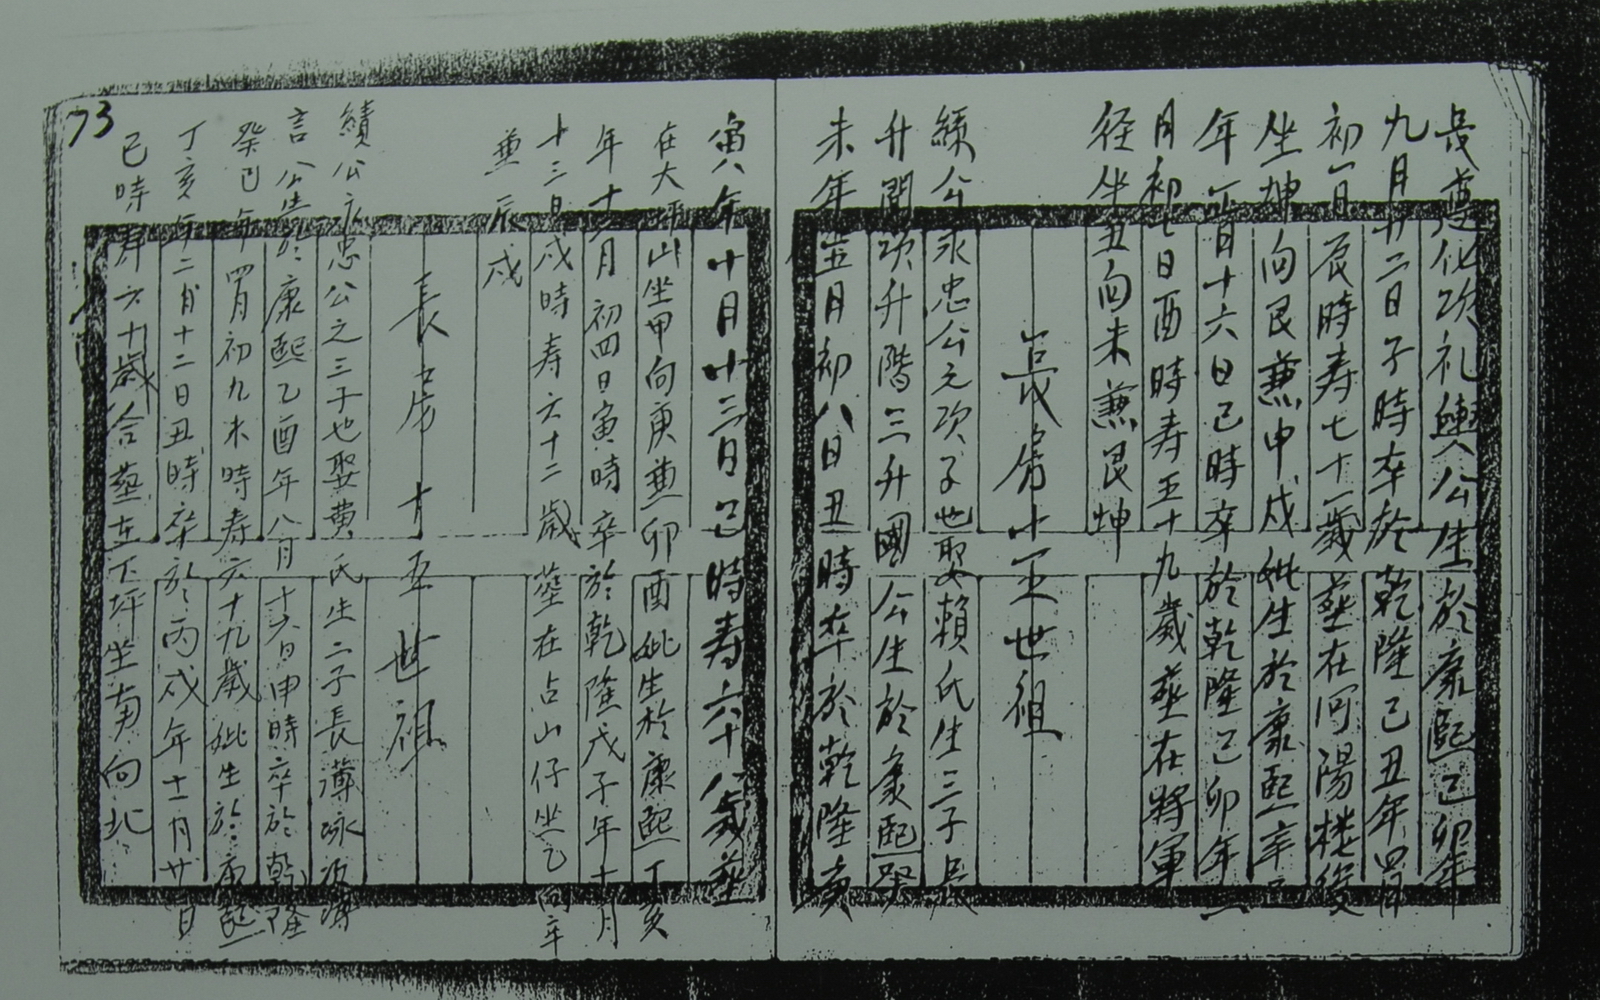 長遵化次礼與公生於康熙己卯年
九月廿二日子時卒於乾隆己丑年四月
初一日辰時寿七十一歲葬在河陽楼後
坐坤向艮兼申戌妣生於康熙辛巳
年正月十六日巳時卒於乾隆己卯年二
月初七日酉時寿五十九歲葬在將軍
径坐丑向未兼艮坤
長房十五世祖
緑公永忠公之次子也娶賴氏生三子長
升聞次升階三升國公生於康熙癸
未年五月初八日丑時卒於乾隆庚
寅八年十月廿三日巳時寿六十八歲葬
在大坪山坐甲向庚兼卯酉妣生於康熙丁亥
年十一月初四日寅時卒於乾隆戊子年十月
十三日戌時寿六十二歲葬在占山仔坐乙向辛
兼辰戌
長房十五世祖
績公永忠公之三子也娶黄氏生二子長薄咏次薄
言公生於康熙乙酉年八月十六日申時卒於乾隆
癸巳年四月初九未時寿六十九歲妣生於康熙
丁亥年二月十二日丑時卒於丙戌年十一月廿日
己時寿六十歲合葬在下坪坐南向北
73